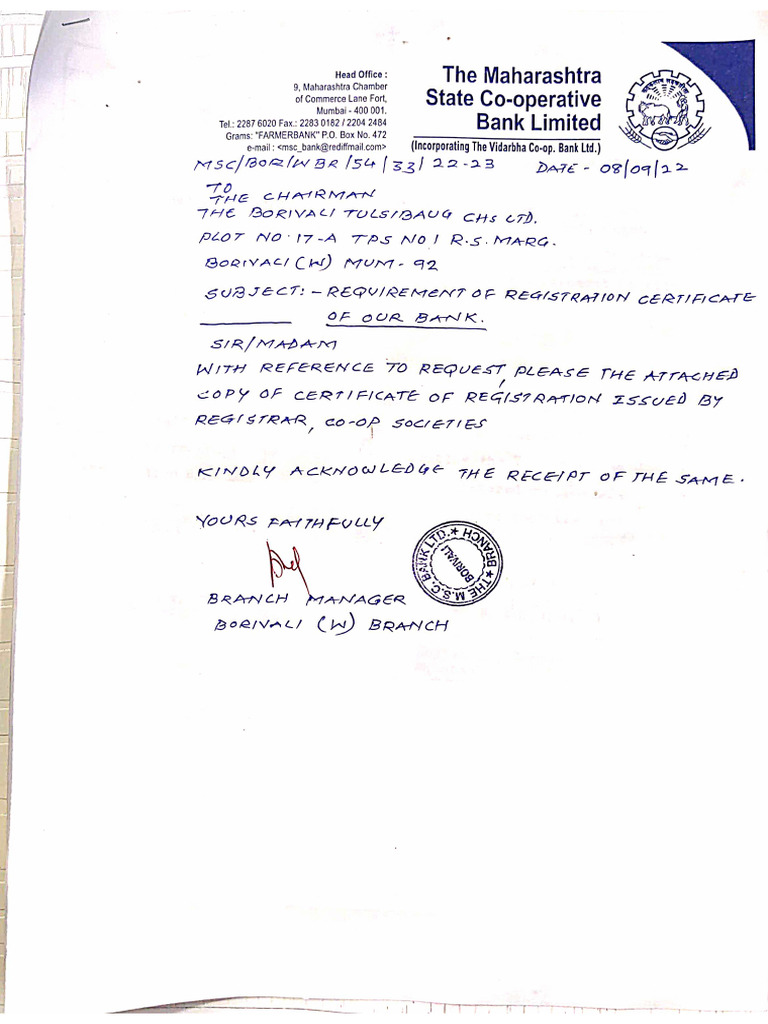 Head Office :
9, Maharashtra Chamber
of Commerce Lane Fort,
Mumbai - 400 001.
Tel.: 2287 6020 Fax.: 2283 0182 / 2204 2484
Grams: "FARMERBANK" P.O. Box No. 472
e-mail : <msc_bank@rediffmail.com>
The Maharashtra
State Co-operative
Bank Limited
(Incorporating The Vidarbha Co-op. Bank Ltd.)
MSC/BOR/WBR/54/33/22-23 DATE - 08/09/22
TO
THE CHAIRMAN
THE BORIVALI TULSIBAUG CHS LTD.
PLOT NO. 17-A TPS NO 1 R.S. MARG.
BORIVALI (W) MUM - 92
SUBJECT: - REQUIREMENT OF REGISTRATION CERTIFICATE
OF OUR BANK.
SIR/MADAM
WITH REFERENCE TO REQUEST, PLEASE THE ATTACHED
COPY OF CERTIFICATE OF REGISTRATION ISSUED BY
REGISTRAR, CO-OP SOCIETIES
KINDLY ACKNOWLEDGE THE RECEIPT OF THE SAME.
YOURS FAITHFULLY
★ THE M.S.C. BANK LTD. ★ BRANCH
BORIVALI
BRANCH MANAGER
BORIVALI (W) BRANCH